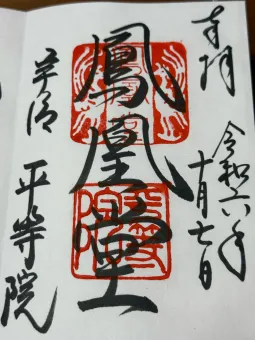 奉拝
令和六年
十月七日
鳳凰堂
宇治
平等院